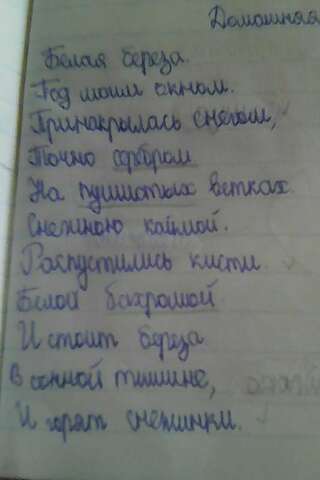 Домашняя
Белая береза.
Под моим окном.
Принакрылась снегом,
Точно серебром
На пушистых ветках
Снежною каймой.
Распустились кисти
Белой бахромой
И стоит береза
В сонной тишине,
И горят снежинки.